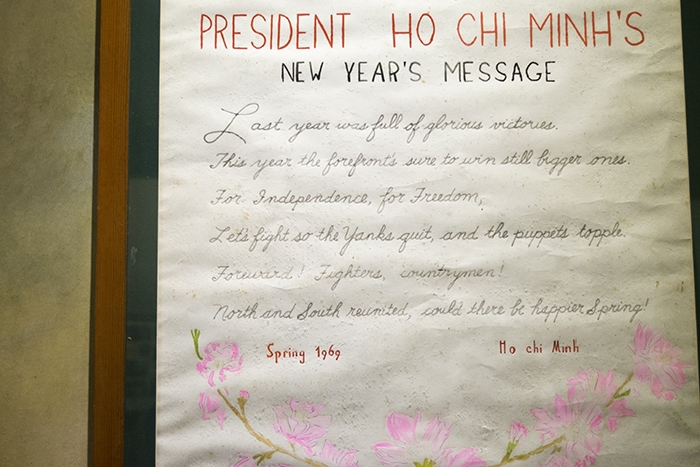 PRESIDENT HO CHI MINH'S
NEW YEAR'S MESSAGE
Last year was full of glorious victories.
This year the forefront's sure to win still bigger ones.
For Independence, for Freedom,
Let's fight so the Yanks quit, and the puppets topple.
Foreward! Fighters, countrymen!
North and South reunited, could there be happier Spring!
Spring 1969 Ho chi Minh